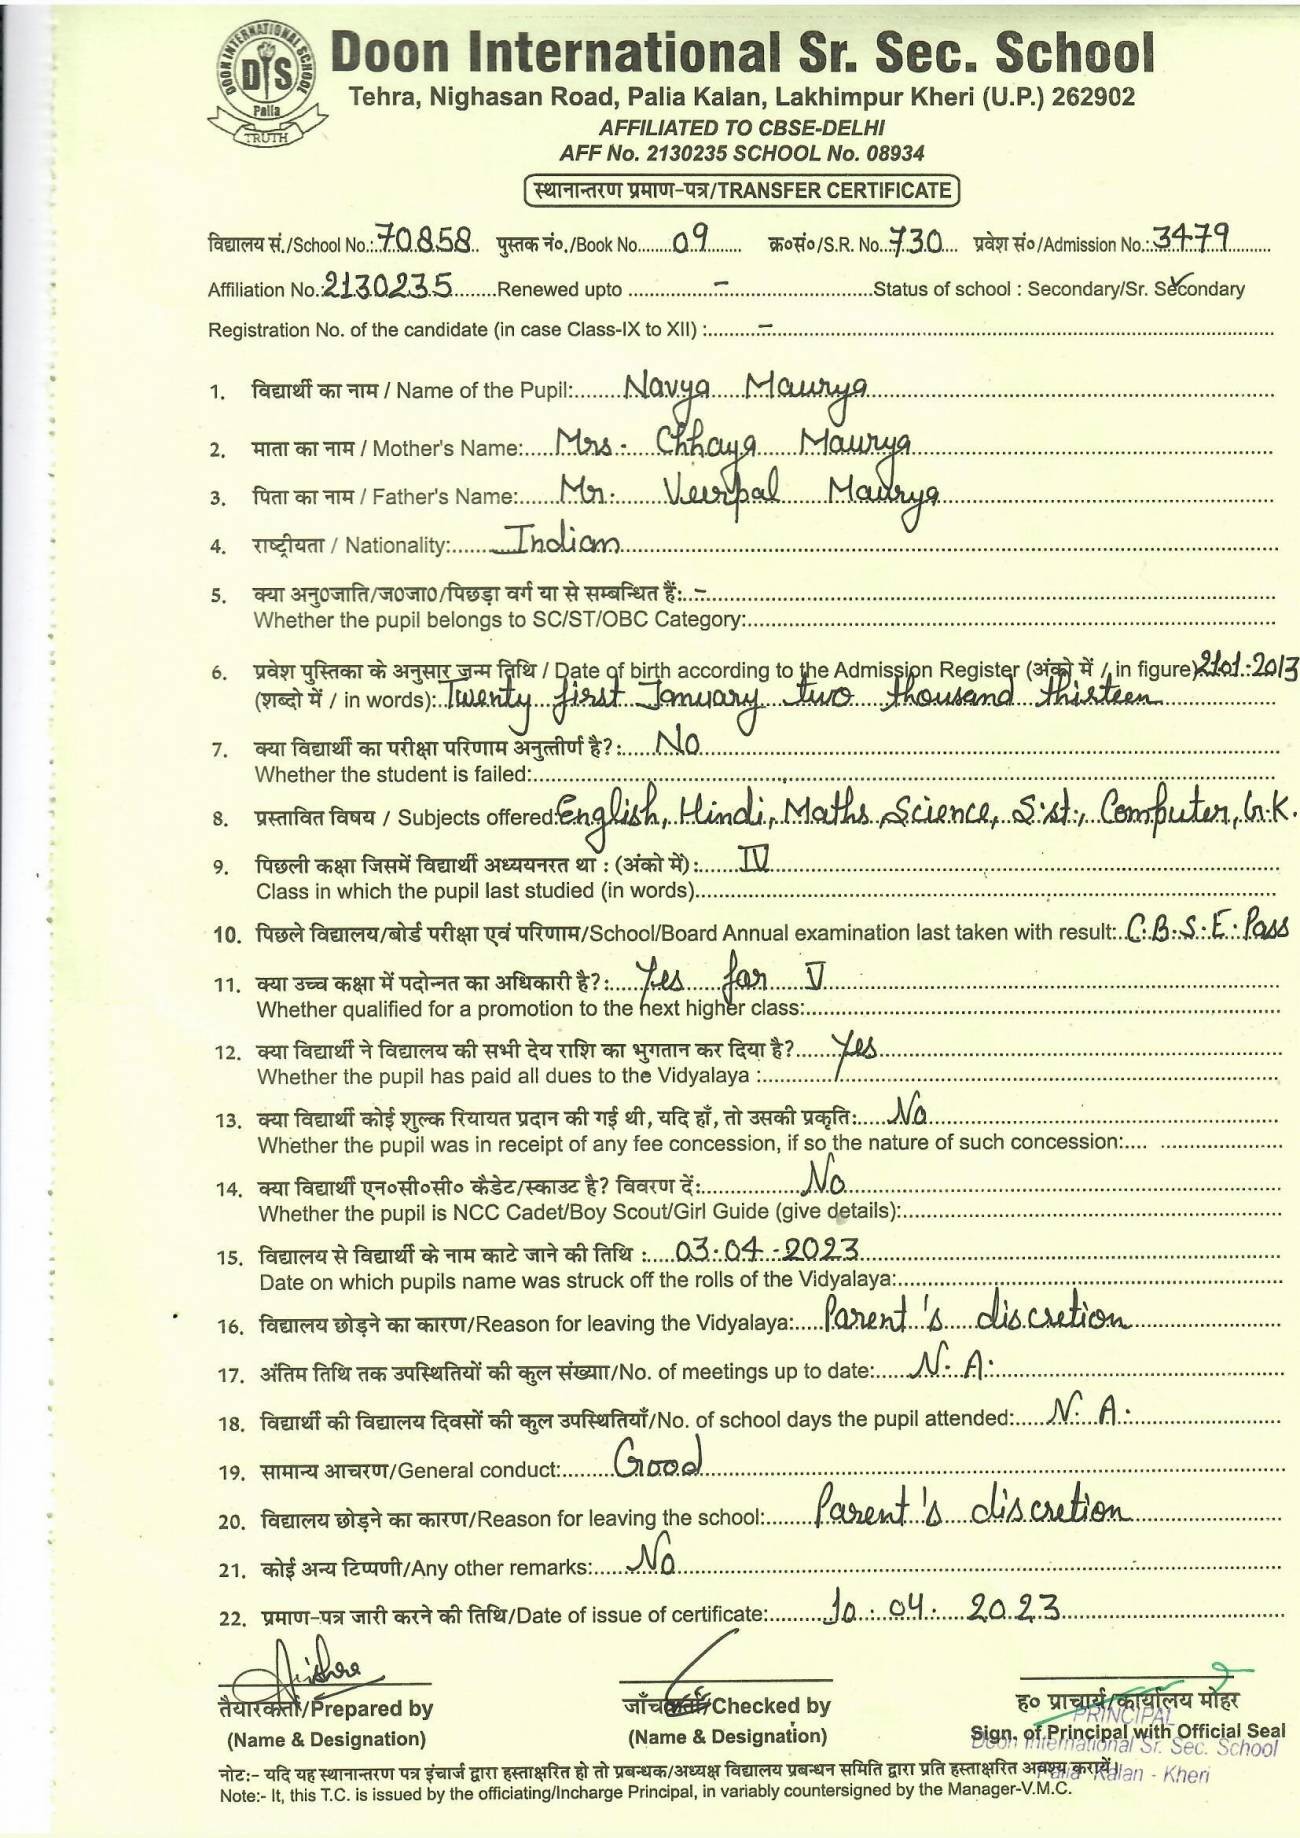 DOON INTERNATIONAL SCHOOL
DIS
Palia
TRUTH
Doon International Sr. Sec. School
Tehra, Nighasan Road, Palia Kalan, Lakhimpur Kheri (U.P.) 262902
AFFILIATED TO CBSE-DELHI
AFF No. 2130235 SCHOOL No. 08934
स्थानान्तरण प्रमाण-पत्र/TRANSFER CERTIFICATE
विद्यालय सं./School No.: 70858 पुस्तक नं०./Book No. 09 क्र०सं०/S.R. No. 730 प्रवेश सं०/Admission No.: 3479
Affiliation No.: 2130235 Renewed upto - Status of school : Secondary/Sr. Secondary
Registration No. of the candidate (in case Class-IX to XII) : -
1. विद्यार्थी का नाम / Name of the Pupil: Navya Maurya
2. माता का नाम / Mother's Name: Mrs. Chhaya Maurya
3. पिता का नाम / Father's Name: Mr. Veerpal Maurya
4. राष्ट्रीयता / Nationality: Indian
5. क्या अनु0जाति/ज0जा0/पिछड़ा वर्ग या से सम्बन्धित हैं: -
Whether the pupil belongs to SC/ST/OBC Category:
6. प्रवेश पुस्तिका के अनुसार जन्म तिथि / Date of birth according to the Admission Register (अंको में / in figure) 21.01.2013
(शब्दो में / in words): Twenty first January two thousand thirteen
7. क्या विद्यार्थी का परीक्षा परिणाम अनुत्तीर्ण है?: No
Whether the student is failed:
8. प्रस्तावित विषय / Subjects offered: English, Hindi, Maths, Science, S.st., Computer, G.K.
9. पिछली कक्षा जिसमें विद्यार्थी अध्ययनरत था : (अंको में) : IV
Class in which the pupil last studied (in words)
10. पिछले विद्यालय/बोर्ड परीक्षा एवं परिणाम/School/Board Annual examination last taken with result: C.B.S.E. Pass
11. क्या उच्च कक्षा में पदोन्नत का अधिकारी है?: Yes for V
Whether qualified for a promotion to the next higher class:
12. क्या विद्यार्थी ने विद्यालय की सभी देय राशि का भुगतान कर दिया है? Yes
Whether the pupil has paid all dues to the Vidyalaya :
13. क्या विद्यार्थी कोई शुल्क रियायत प्रदान की गई थी, यदि हाँ, तो उसकी प्रकृति: No
Whether the pupil was in receipt of any fee concession, if so the nature of such concession:
14. क्या विद्यार्थी एन०सी०सी० कैडेट/स्काउट है? विवरण दें: No
Whether the pupil is NCC Cadet/Boy Scout/Girl Guide (give details):
15. विद्यालय से विद्यार्थी के नाम काटे जाने की तिथि : 03.04.2023
Date on which pupils name was struck off the rolls of the Vidyalaya:
16. विद्यालय छोड़ने का कारण/Reason for leaving the Vidyalaya: Parent's discretion
17. अंतिम तिथि तक उपस्थितियों की कुल संख्याा/No. of meetings up to date: N.A.
18. विद्यार्थी की विद्यालय दिवसों की कुल उपस्थितियाँ/No. of school days the pupil attended: N.A.
19. सामान्य आचरण/General conduct: Good
20. विद्यालय छोड़ने का कारण/Reason for leaving the school: Parent's discretion
21. कोई अन्य टिप्पणी/Any other remarks: No
22. प्रमाण-पत्र जारी करने की तिथि/Date of issue of certificate: 10.04.2023
तैयारकर्ता/Prepared by जाँचकर्ता/Checked by ह० प्राचार्य/कार्यालय मोहर
PRINCIPAL
(Name & Designation) (Name & Designation) Sign. of Principal with Official Seal
Doon International Sr. Sec. School
Palia Kalan - Kheri
नोटः- यदि यह स्थानान्तरण पत्र इंचार्ज द्वारा हस्ताक्षरित हो तो प्रबन्धक/अध्यक्ष विद्यालय प्रबन्धन समिति द्वारा प्रति हस्ताक्षरित अवश्य करायें।
Note:- It, this T.C. is issued by the officiating/Incharge Principal, in variably countersigned by the Manager-V.M.C.